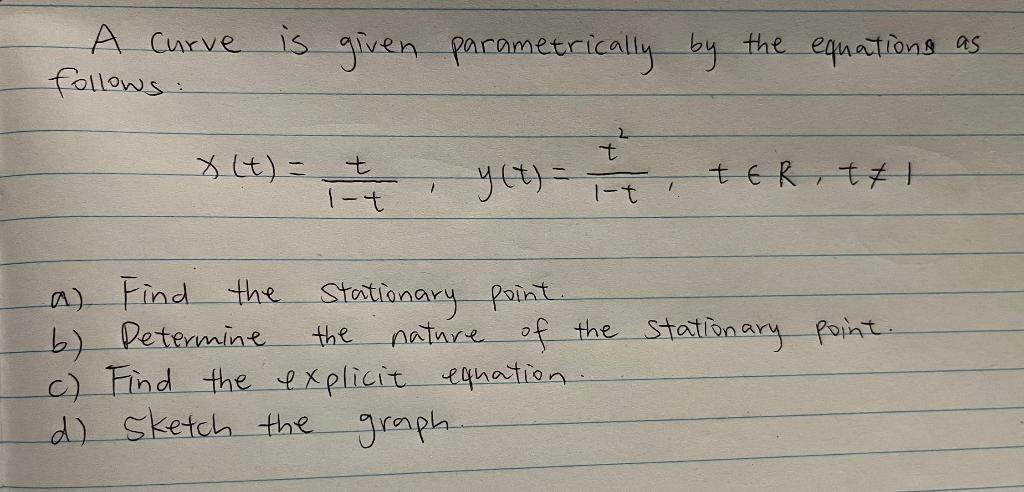 A curve is given parametrically by the equations as
follows:
x(t) = t/(1-t), y(t) = t²/(1-t), t ∈ R, t ≠ 1
a) Find the stationary point.
b) Determine the nature of the stationary point.
c) Find the explicit equation.
d) Sketch the graph.